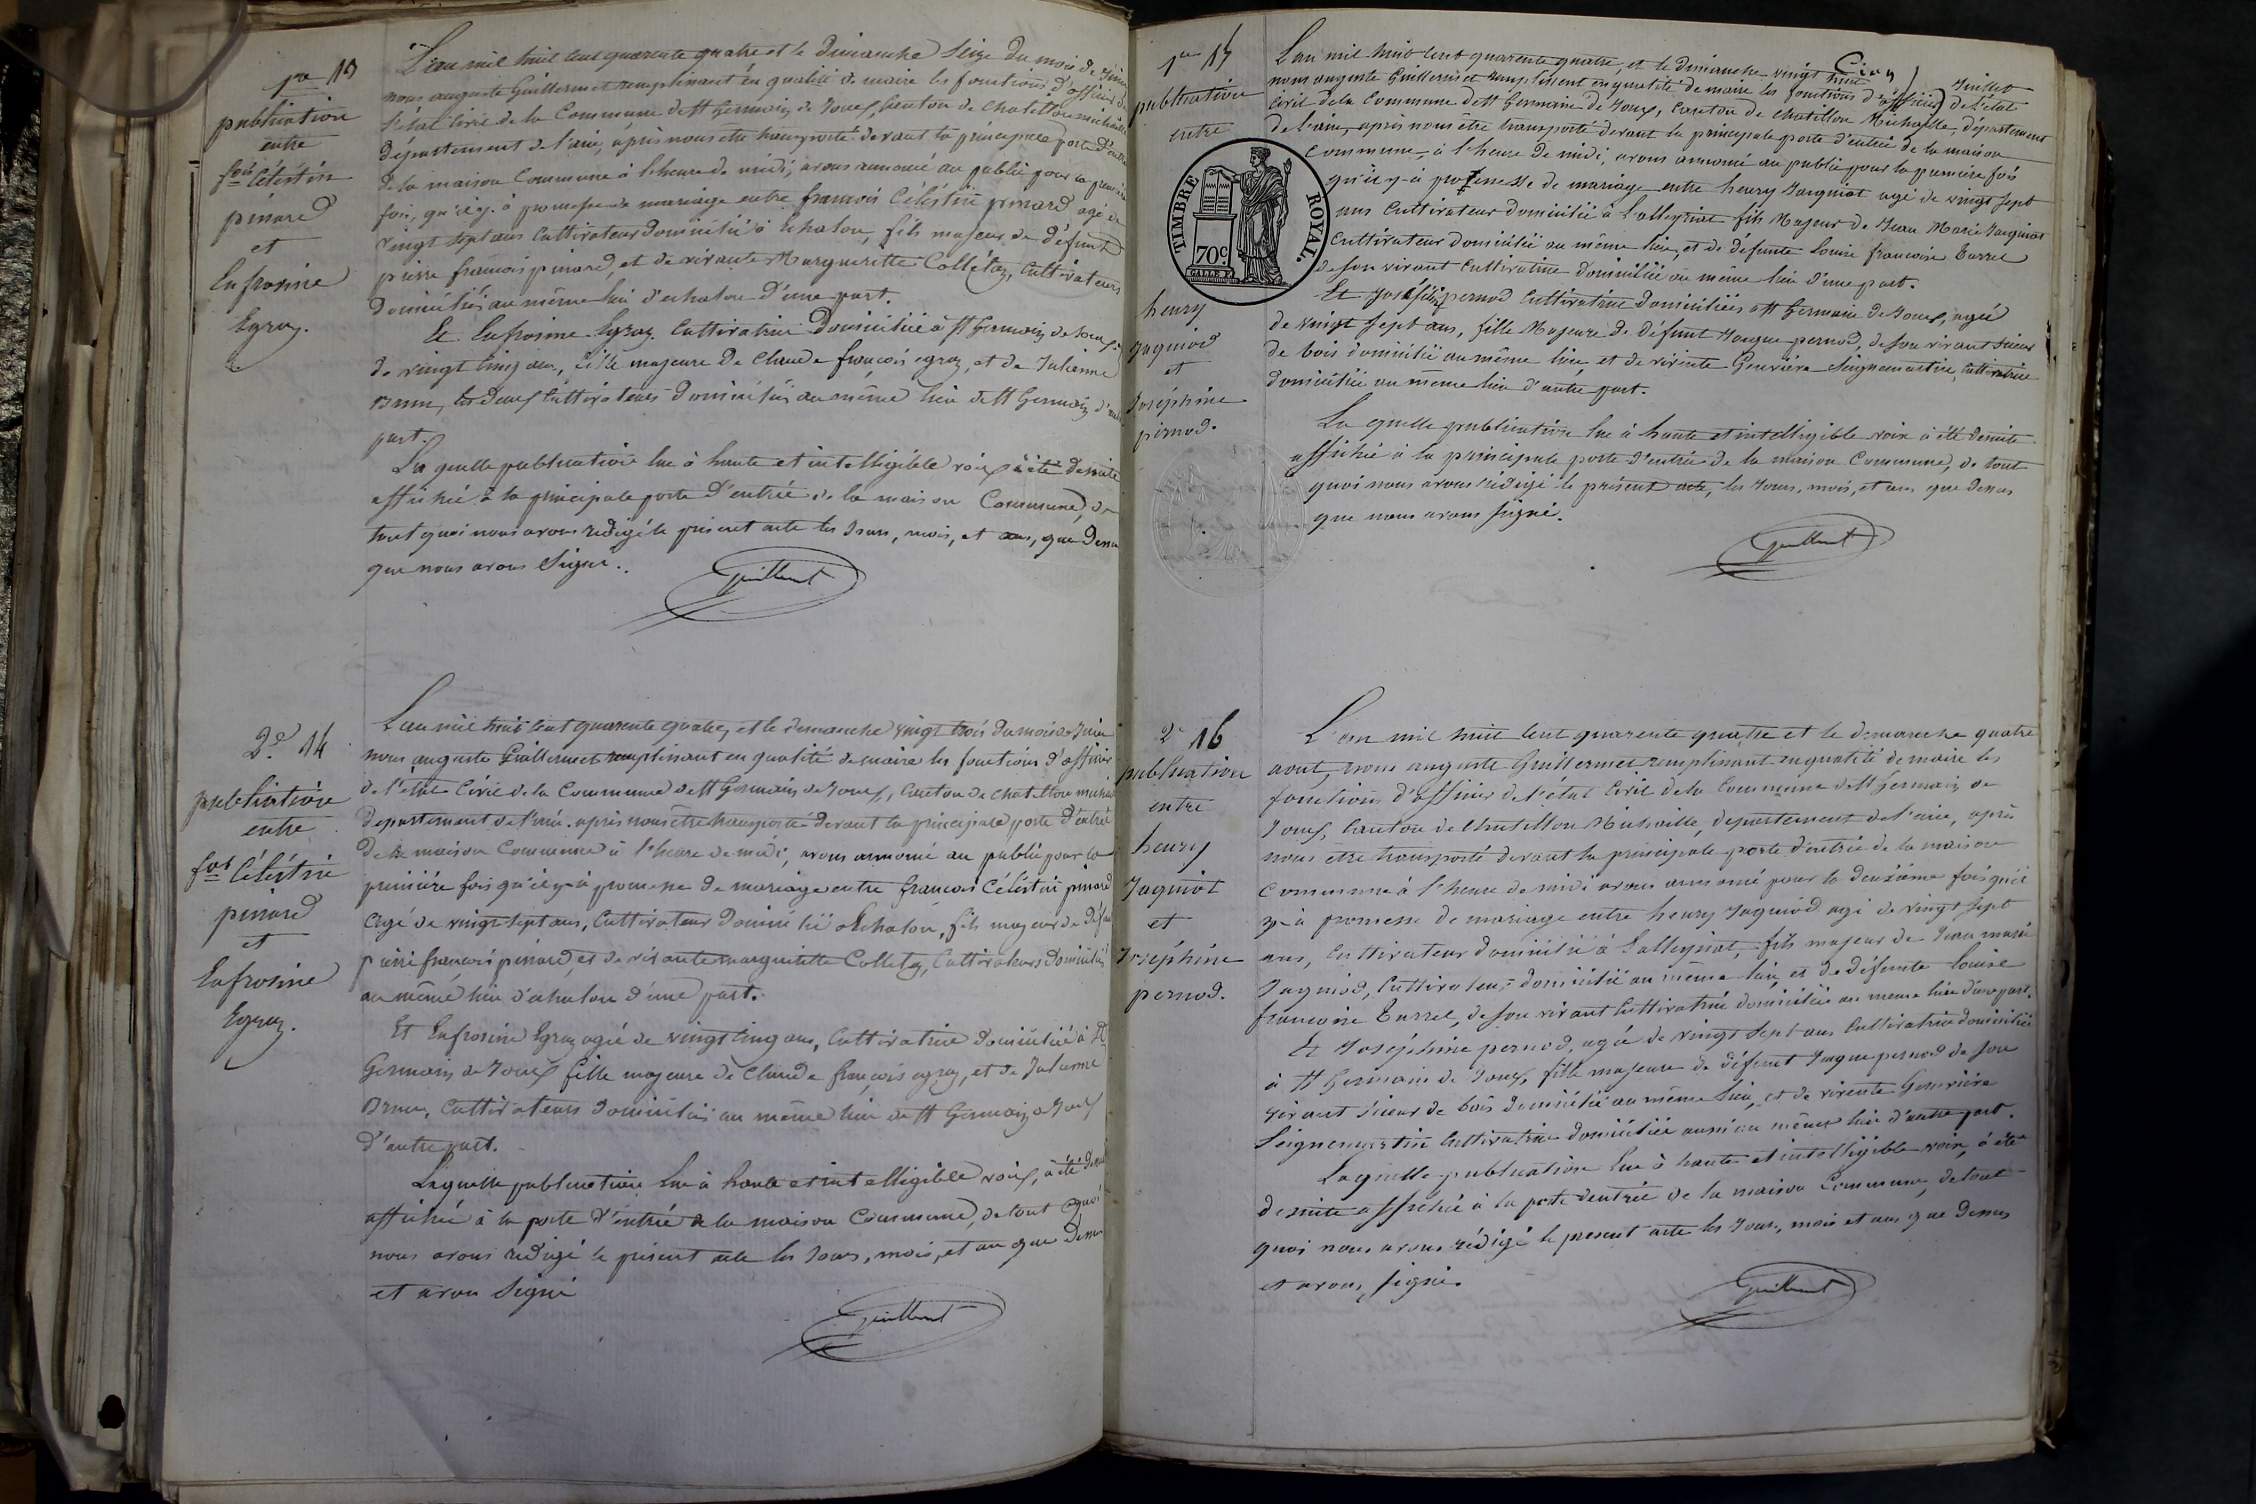 1re 13
publication
entre
fois Céléstin
pinard
et
Eufrosine
Egraz.
L'an mil huit cent quarente quatre et le dimanche seize du mois de juin
nous auguste Guillermet remplissant en qualité de maire les fonctions d'officier de
l'état Civil de la Commune de St Germain de Joux, Canton de chatillon michaille
département de l'ain, après nous être transporté devant la principale porte d'entrée
de la maison Commune à l'heure de midi, avons annoncé au public pour la première
fois, qu'il y a promesse de mariage entre francois Céléstin pinard agé de
vingt sept ans Cultivateur domicilié à Echalon, fils majeur de défunt
pierre francois pinard, et de vivante Margueritte Collétaz, Cultivateurs
domiciliés au même lieu d'echalon d'une part.
Et Eufrosine Egraz Cultivatrice domiciliée à St Germain de Joux,
de vingt cinq ans, fille majeure de Claude françois egraz, et de Julienne
Brun, les deux Cultivateurs domiciliés au même lieu de St Germain d'autre
part.
La quelle publication lue à haute et intelligible voix à été desuite
affichée à la principale porte d'entrée de la maison Commune, de
tout quoi nous avons rédigé le présent acte les Jours, mois, et ans, que dessus
que nous avons Signé.
Guillermet
2e 14
publication
entre
fois Céléstin
pinard
et
Eufrosine
Egraz.
L'an mil huit cent quarente quatre, et le dimanche vingt trois du mois de Juin
nous auguste Guillermet remplissant en qualité de maire les fonctions d'officier
de l'état Civil de la Commune de St Germain de Joux, Canton de chatillon michaille
département de l'ain. après nous être transporté devant la principale porte d'entrée
de la maison Commune à l'heure de midi, avons annoncé au public pour la
première fois qu'il y a promesse de mariage entre francois Céléstin pinard
agé de vingt sept ans, Cultivateur domicilié a Echalon, fils majeur de défunt
pierre françois pinard, et de vivante margueritte Colletaz, Cultivateurs domiciliés
au même lieu d'echalon d'une part.
Et Eufrosine Egraz agée de vingt cinq ans, Cultivatrice domiciliée à St
Germain de Joux fille majeure de Claude françois egraz, et de Julienne
Brun, Cultivateurs domiciliés au même lieu de St Germain de Joux
d'autre part.
Laquelle publication lue à haute et intelligible voix, à été desuite
affichée à la porte d'entrée de la maison Commune, de tout quoi
nous avons rédigé le présent acte les Jours, mois, et an que dessus
et avons Signé
Guillermet
1re 15
publication
entre
TIMBRE ROYAL.
70c.
henry
Jaquiod
et
Joséphine
pernod.
Cinq
L'an mil huit cent quarente quatre, et le dimanche vingt huit Juillet
nous auguste Guillermet remplissant en qualité de maire les fonctions d'officier de l'état
Civil de la Commune de St Germain de Joux, Canton de chatillon Michaille, département
de l'ain, après nous être transporté devant la principale porte d'entrée de la maison
Commune, à l'heure de midi, avons annoncé au public pour la première fois
qu'il y a promesse de mariage entre henry Jaquiot agé de vingt sept
ans Cultivateur domicilié à Lalleyriat fils Majeur de Jean Marie Jaquiot
Cultivateur domicilié au même lieu, et de défunte Louise francoise Turrel
de son vivant Cultivatrice domiciliée au même lieu d'une part.
Et Joséphine pernod Cultivatrice domiciliée a St Germain de Joux, agée
de vingt sept ans, fille Majeure de défunt Jacque pernod, de son vivant scieur
de bois domicilié au même lieu et de vivente Genevieve Seignemartin, Cultivatrice
domiciliée au même lieu d'autre part.
La quelle publication lue à haute et intelligible voix à été desuite
affichée à la principale porte d'entrée de la maison Commune, de tout
quoi nous avons rédigé le présent acte, les Jours, mois, et ans que dessus
que nous avons signé.
Guillermet
2e 16
publication
entre
henry
Jaquiot
et
Joséphine
pernod.
L'an mil huit cent quarente quatre et le dimanche quatre
aout, nous auguste Guillermet remplissant en qualité de maire les
fonctions d'officier de l'état Civil de la Commune de St Germain de
Joux, Canton de Chatillon Michaille, departement de l'ain, après
nous être transporté devant la principale porte d'entrée de la maison
Commune à l'heure de midi avons annoncé pour la deuxième fois qu'il
y a promesse de mariage entre henry Jaquiod agé de vingt sept
ans, Cultivateur domicilié à Lalleyriat, fils majeur de Jean marie
Jaquiod, Cultivateur domicilié au même lieu, et de défunte louise
francoise Turrel, de son vivant Cultivatrice domiciliée au meme lieu d'une part.
Et Joséphine pernod, agée de vingt sept ans Cultivatrice domiciliée
à St Germain de Joux, fille majeure de défunt Jacque pernod de son
vivant scieur de bois domicilié au même lieu, et de vivente Genevière
Seignemartin Cultivatrice domiciliée aussi au même lieu d'autre part.
Laquelle publication lue à haute et intelligible voix, à été
desuite affichée à la porte d'entrée de la maison Commune, de tout
quoi nous avons rédigé le present acte les Jours, mois et ans que dessus
et avons, signé.
Guillermet